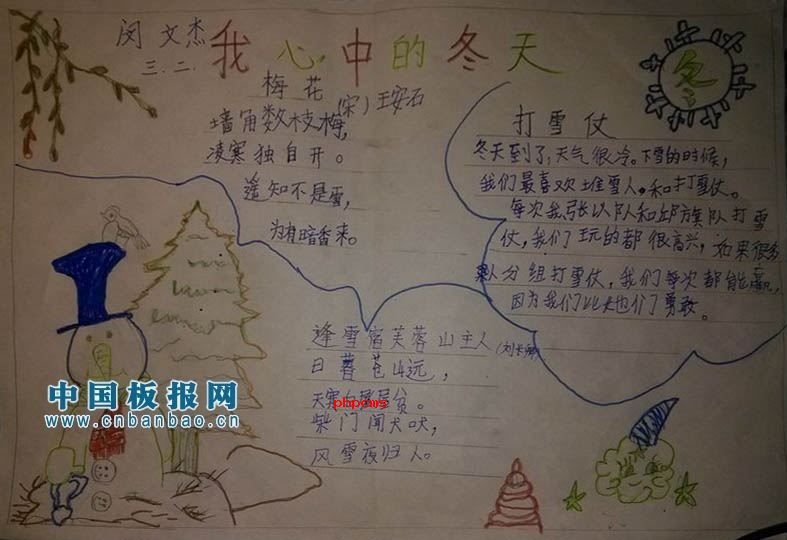 闵文杰
三.二.
我心中的冬天
冬
梅花
(宋)王安石
墙角数枝梅,
凌寒独自开。
遥知不是雪,
为有暗香来。
打雪仗
冬天到了,天气很冷。下雪的时候,
我们最喜欢堆雪人。和打雪仗。
每次我张以队和邱旗队打雪
仗,我们玩的都很高兴,如果很多
队分组打雪仗,我们每次都能赢,
因为我们比他们勇敢。
逢雪宿芙蓉山主人
日暮苍山远,
天寒白屋贫。
柴门闻犬吠,
风雪夜归人。
中国板报网
www.cnbanbao.cn
phpcms